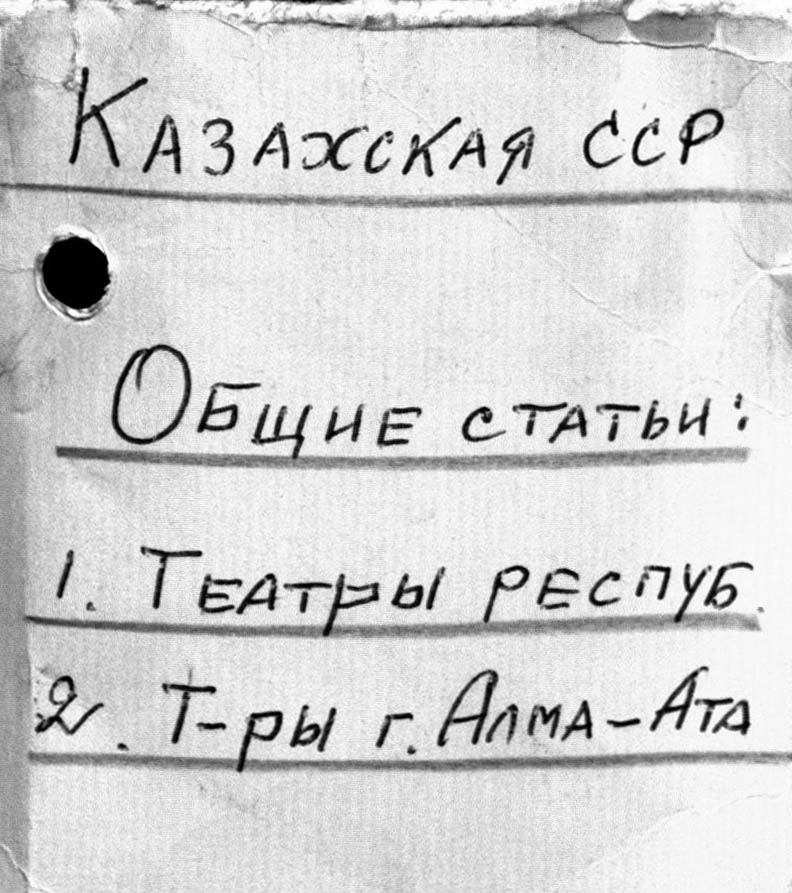 Казахская ССР
Общие статьи:
1. Театры респуб.
2. Т-ры г. Алма-Ата